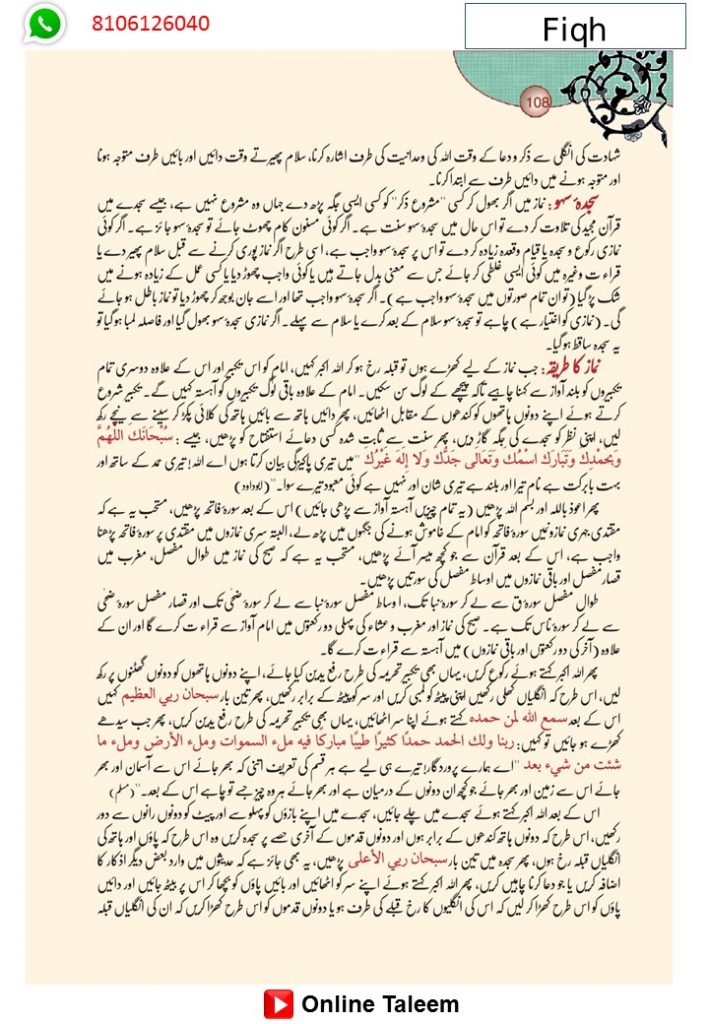 8106126040
Fiqh
108
شہادت کی انگلی سے ذکر و دعا کے وقت اللہ کی وحدانیت کی طرف اشارہ کرنا، سلام پھیرتے وقت دائیں اور بائیں طرف متوجہ ہونا
اور متوجہ ہونے میں دائیں طرف سے ابتدا کرنا۔
سجدۂ سہو: نماز میں اگر بھول کر کسی "مشروع ذکر" کو کسی ایسی جگہ پڑھ دے جہاں وہ مشروع نہیں ہے، جیسے سجدے میں
قرآن مجید کی تلاوت کر دے تو اس حال میں سجدۂ سہو سنت ہے۔ اگر کوئی مسنون کام چھوٹ جائے تو سجدۂ سہو جائز ہے۔ اگر کوئی
نمازی رکوع و سجدہ یا قیام و قعدہ زیادہ کر دے تو اس پر سجدۂ سہو واجب ہے، اسی طرح اگر نماز پوری کرنے سے قبل سلام پھیر دے یا
قراءت وغیرہ میں کوئی ایسی غلطی کر جائے جس سے معنی بدل جاتے ہیں یا کوئی واجب چھوڑ دیا یا کسی عمل کے زیادہ ہونے میں
شک پڑ گیا (تو ان تمام صورتوں میں سجدۂ سہو واجب ہے)۔ اگر سجدۂ سہو واجب تھا اور اسے جان بوجھ کر چھوڑ دیا تو نماز باطل ہو جائے
گی۔ (نمازی کو اختیار ہے) چاہے تو سجدۂ سہو سلام کے بعد کرے یا سلام سے پہلے۔ اگر نمازی سجدۂ سہو بھول گیا اور فاصلہ لمبا ہو گیا تو
یہ سجدہ ساقط ہو گیا۔
نماز کا طریقہ: جب نماز کے لیے کھڑے ہوں تو قبلہ رخ ہو کر اللہ اکبر کہیں، امام کو اس تکبیر اور اس کے علاوہ دوسری تمام
تکبیروں کو بلند آواز سے کہنا چاہیے تاکہ پیچھے کے لوگ سن سکیں۔ امام کے علاوہ باقی لوگ تکبیروں کو آہستہ کہیں گے۔ تکبیر شروع
کرتے ہوئے اپنے دونوں ہاتھوں کو کندھوں کے مقابل اٹھائیں، پھر دائیں ہاتھ سے بائیں ہاتھ کی کلائی پکڑ کر سینے سے نیچے رکھ
لیں، اپنی نظر کو سجدے کی جگہ گاڑ دیں، پھر سنت سے ثابت شدہ کسی دعائے استفتاح کو پڑھیں، جیسے: سُبْحَانَكَ اللّٰهُمَّ
وَبِحَمْدِكَ وَتَبَارَكَ اسْمُكَ وَتَعَالَى جَدُّكَ وَلَا إِلَهَ غَيْرُكَ "میں تیری پاکیزگی بیان کرتا ہوں اے اللہ! تیری حمد کے ساتھ اور
بہت بابرکت ہے نام تیرا اور بلند ہے تیری شان اور نہیں ہے کوئی معبود تیرے سوا۔" (ابوداود)
پھر اعوذ باللہ اور بسم اللہ پڑھیں (یہ تمام چیزیں آہستہ آواز سے پڑھی جائیں) اس کے بعد سورۂ فاتحہ پڑھیں، مستحب یہ ہے کہ
مقتدی جہری نمازونمیں سورۂ فاتحہ کو امام کے خاموش ہونے کی جگہوں میں پڑھ لے، البتہ سری نمازوں میں مقتدی پر سورۂ فاتحہ پڑھنا
واجب ہے، اس کے بعد قرآن سے جو کچھ میسر آئے پڑھیں، مستحب یہ ہے کہ صبح کی نماز میں طوال مفصل، مغرب میں
قصار مفصل اور باقی نمازوں میں اوساط مفصل کی سورتیں پڑھیں۔
طوال مفصل سورۂ ق سے لے کر سورۂ نبا تک، اوساط مفصل سورۂ نبا سے لے کر سورۂ ضحٰی تک اور قصار مفصل سورۂ ضحٰی
سے لے کر سورۂ ناس تک ہے۔ صبح کی نماز اور مغرب و عشاء کی پہلی دو رکعتوں میں امام آواز سے قراءت کرے گا اور ان کے
علاوہ (آخر کی دو رکعتوں اور باقی نمازوں) میں آہستہ سے قراءت کرے گا۔
پھر اللہ اکبر کہتے ہوئے رکوع کریں، یہاں بھی تکبیر تحریمہ کی طرح رفع یدین کیا جائے، اپنے دونوں ہاتھوں کو دونوں گھٹنوں پر رکھ
لیں، اس طرح کہ انگلیاں کھلی رکھیں اپنی پیٹھ کو لمبی کریں اور سر کو پیٹھ کے برابر رکھیں، پھر تین بار سبحان ربي العظيم کہیں
اس کے بعد سمع الله لمن حمده کہتے ہوئے اپنا سر اٹھائیں، یہاں بھی تکبیر تحریمہ کی طرح رفع یدین کریں، پھر جب سیدھے
کھڑے ہو جائیں تو کہیں: ربنا ولك الحمد حمدًا كثيرًا طيبًا مباركا فيه ملء السموات وملء الأرض وملء ما
شئت من شيء بعد "اے ہمارے پروردگار! تیرے ہی لیے ہے ہر قسم کی تعریف اتنی کہ بھر جائے اس سے آسمان اور بھر
جائے اس سے زمین اور بھر جائے جو کچھ ان دونوں کے درمیان ہے اور بھر جائے ہر وہ چیز جسے تو چاہے اس کے بعد۔" (مسلم)
اس کے بعد اللہ اکبر کہتے ہوئے سجدے میں چلے جائیں، سجدے میں اپنے بازؤں کو پہلو سے اور پیٹ کو دونوں رانوں سے دور
رکھیں، اس طرح کہ دونوں ہاتھ کندھوں کے برابر ہوں اور دونوں قدموں کے آخری حصے پر سجدہ کریں وہ اس طرح کہ پاؤں اور ہاتھ کی
انگلیاں قبلہ رخ ہوں، پھر سجدہ میں تین بار سبحان ربي الأعلى پڑھیں، یہ بھی جائز ہے کہ حدیثوں میں وارد بعض دیگر اذکار کا
اضافہ کریں یا جو دعا کرنا چاہیں کریں، پھر اللہ اکبر کہتے ہوئے اپنے سر کو اٹھائیں اور بائیں پاؤں کو بچھا کر اس پر بیٹھ جائیں اور دائیں
پاؤں کو اس طرح کھڑا کر لیں کہ اس کی انگلیوں کا رخ قبلے کی طرف ہو یا دونوں قدموں کو اس طرح کھڑا کریں کہ ان کی انگلیاں قبلہ
Online Taleem